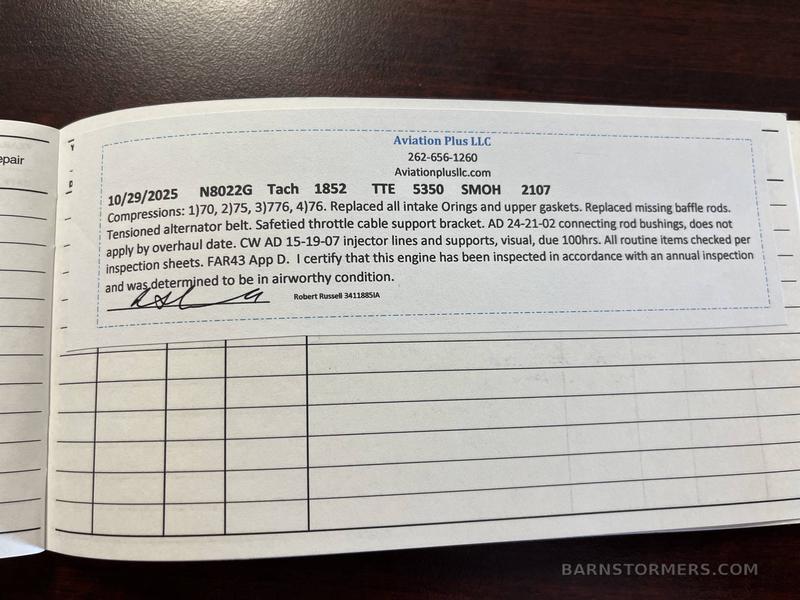 epair
Aviation Plus LLC
262-656-1260
Aviationplusllc.com
10/29/2025 N8022G Tach 1852 TTE 5350 SMOH 2107
Compressions: 1)70, 2)75, 3)776, 4)76. Replaced all intake Orings and upper gaskets. Replaced missing baffle rods.
Tensioned alternator belt. Safetied throttle cable support bracket. AD 24-21-02 connecting rod bushings, does not
apply by overhaul date. CW AD 15-19-07 injector lines and supports, visual, due 100hrs. All routine items checked per
inspection sheets. FAR43 App D. I certify that this engine has been inspected in accordance with an annual inspection
and was determined to be in airworthy condition.
Robert Russell 3411885IA
BARNSTORMERS.COM